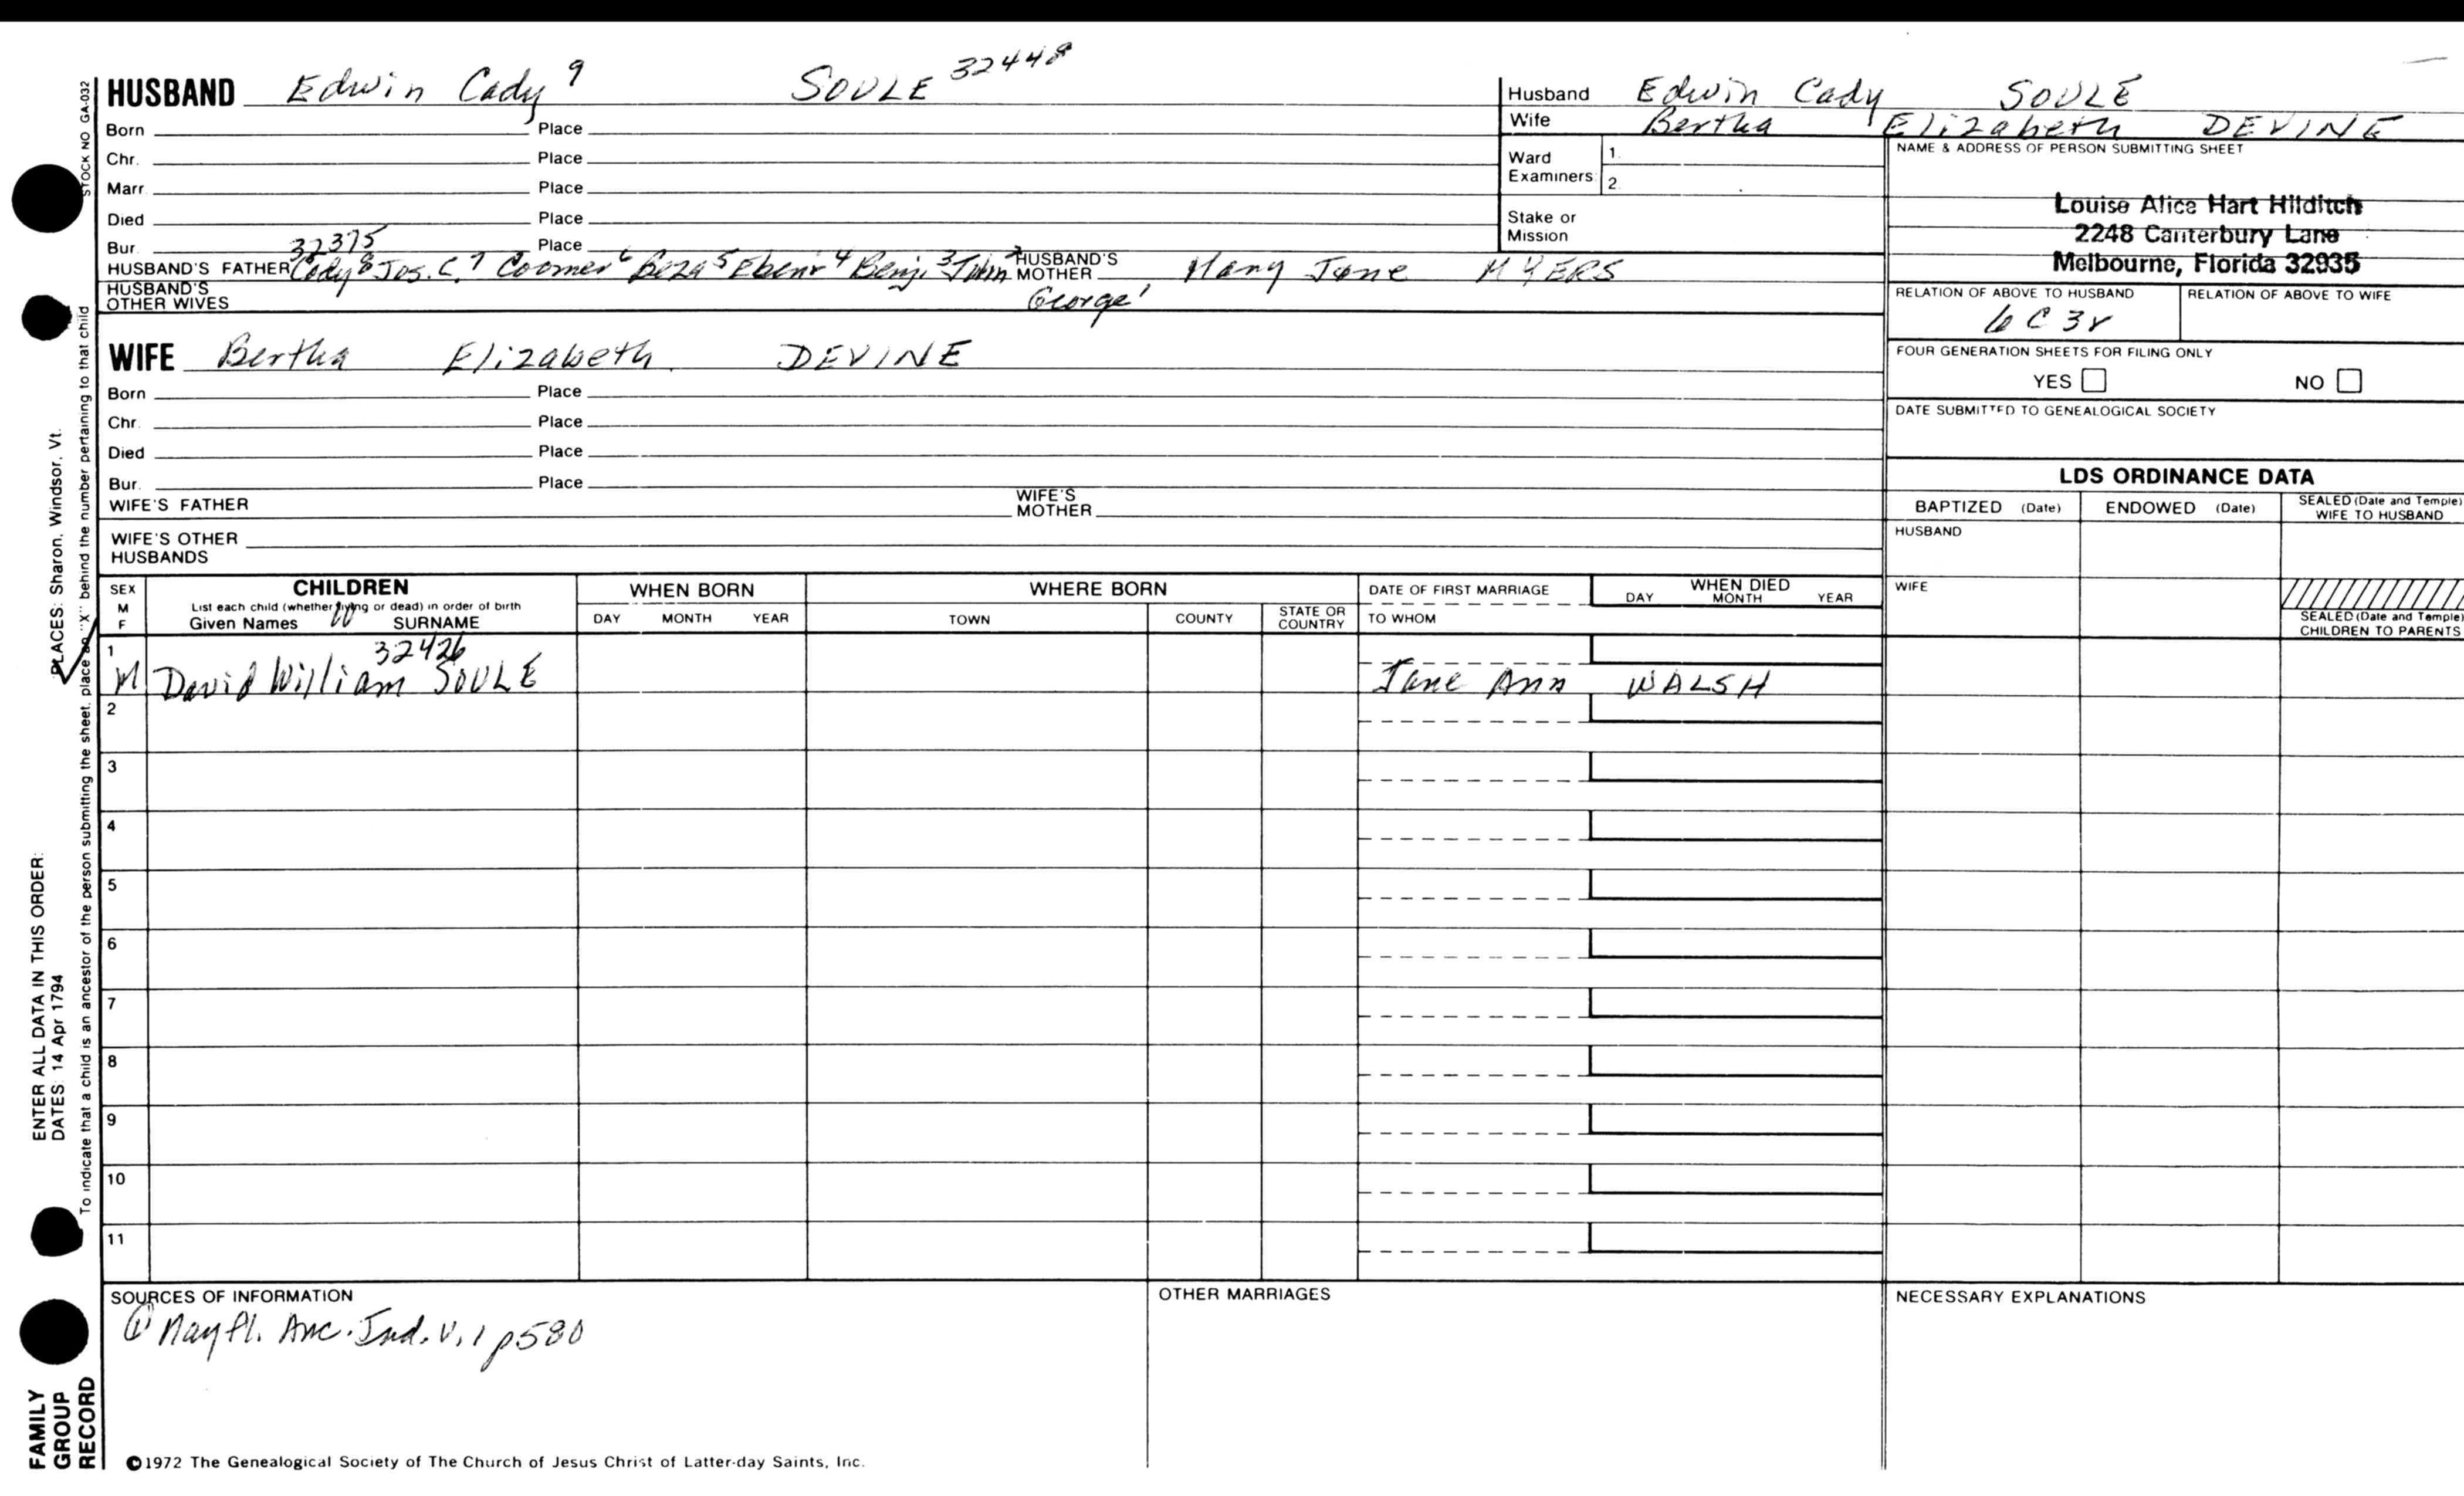 HUSBAND Edwin Cady 9 SOULE 32448
Born Place
Chr. Place
Marr. Place
Died Place
Bur. Place
32375
HUSBAND'S FATHER Cady 8 Jos. C. 7 Coomer 6 Beza 5 Ebenr 4 Benj. 3 John 2 HUSBAND'S MOTHER Mary Jane MYERS
HUSBAND'S OTHER WIVES George 1
WIFE Bertha Elizabeth DEVINE
Born Place
Chr. Place
Died Place
Bur. Place
WIFE'S FATHER WIFE'S MOTHER
WIFE'S OTHER HUSBANDS
Husband Edwin Cady SOULE
Wife Bertha Elizabeth DEVINE
Ward Examiners 1. 2.
Stake or Mission
NAME & ADDRESS OF PERSON SUBMITTING SHEET
Louise Alice Hart Hilditch
2248 Canterbury Lane
Melbourne, Florida 32935
RELATION OF ABOVE TO HUSBAND RELATION OF ABOVE TO WIFE
6 C 3r
FOUR GENERATION SHEETS FOR FILING ONLY
YES NO
DATE SUBMITTED TO GENEALOGICAL SOCIETY
LDS ORDINANCE DATA
BAPTIZED (Date) ENDOWED (Date) SEALED (Date and Temple) WIFE TO HUSBAND
HUSBAND
WIFE
SEALED (Date and Temple) CHILDREN TO PARENTS
SEX M F
CHILDREN
List each child (whether living or dead) in order of birth
Given Names 10 SURNAME
WHEN BORN
DAY MONTH YEAR
WHERE BORN
TOWN COUNTY STATE OR COUNTRY
DATE OF FIRST MARRIAGE
TO WHOM
WHEN DIED
DAY MONTH YEAR
1 32426
M David William SOULE Jane Ann WALSH
2
3
4
5
6
7
8
9
10
11
SOURCES OF INFORMATION
① Mayfl. Anc. Ind. V. 1 p580
OTHER MARRIAGES
NECESSARY EXPLANATIONS
©1972 The Genealogical Society of The Church of Jesus Christ of Latter-day Saints, Inc.
STOCK NO GA-032
To indicate that a child is an ancestor of the person submitting the sheet, place an "X" behind the number pertaining to that child
ENTER ALL DATA IN THIS ORDER:
DATES: 14 Apr 1794 PLACES: Sharon, Windsor, Vt.
FAMILY
GROUP
RECORD